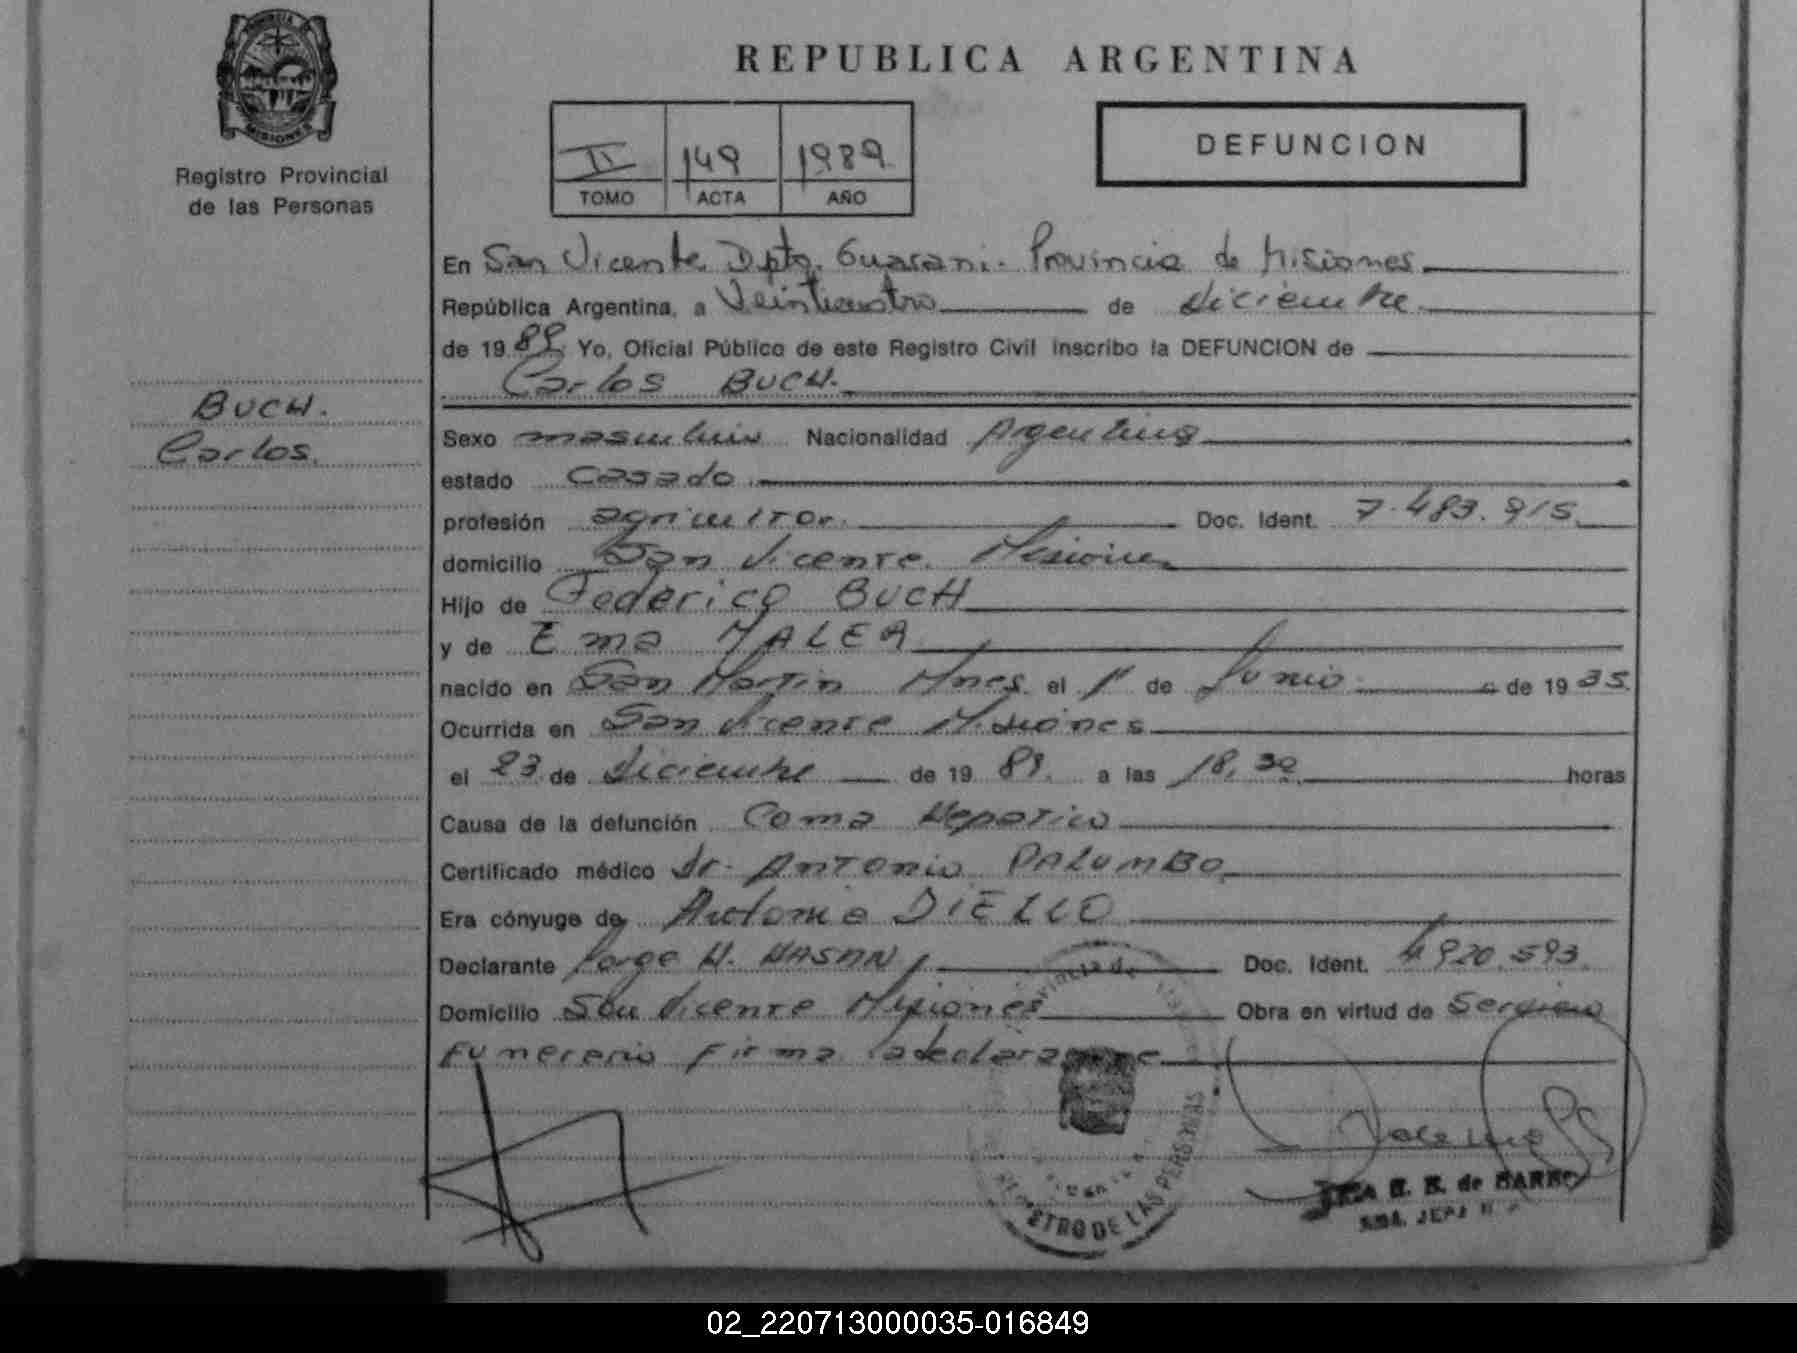 PROVINCIA DE
MISIONES
Registro Provincial
de las Personas
REPUBLICA ARGENTINA
II 149 1989
TOMO ACTA AÑO
DEFUNCION
En San Vicente Dpto. Guarani. Provincia de Misiones
República Argentina, a Veinticuatro de diciembre
de 19 89 Yo, Oficial Público de este Registro Civil inscribo la DEFUNCION de
Carlos BUCH.
BUCH.
Carlos.
Sexo masculino Nacionalidad Argentina
estado Casado
profesión agricultor Doc. Ident. 7.483.915
domicilio San Vicente Misiones
Hijo de Federico BUCH
y de Ema MALEA
nacido en San Martin Mnes. el 1º de Junio de 19 35
Ocurrida en San Vicente Misiones
el 23 de diciembre de 19 89. a las 18,30 horas
Causa de la defunción Coma Hepatico
Certificado médico Dr. ANTONIO PALUMBO
Era cónyuge de Antonia DIELLO
Declarante Jorge H. HASAN Doc. Ident. 4920.593
Domicilio San Vicente Misiones Obra en virtud de Servicio
Funerario firma la declarante
REGISTRO DE LAS PERSONAS
de
02_220713000035-016849